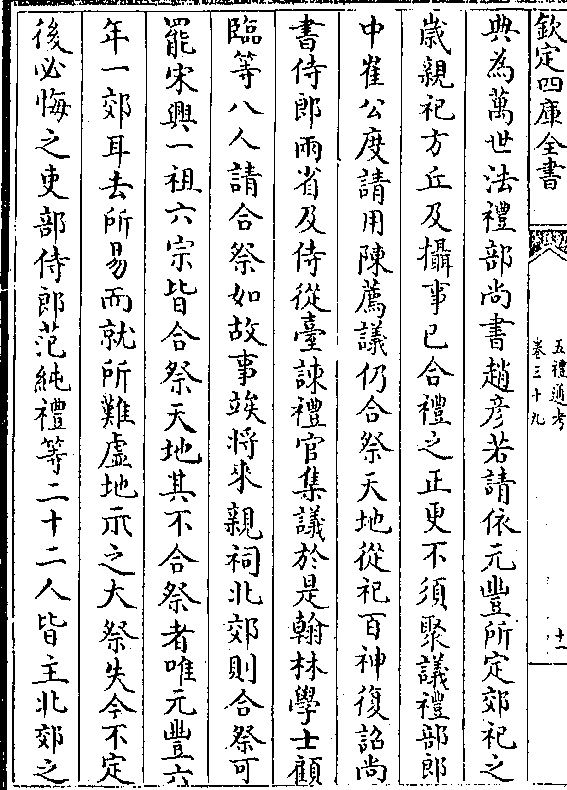 欽定四庫全書
五禮通考
卷三十九
十一
典為萬世法禮部尚書趙彦若請依元豐所定郊祀之
歲親祀方丘及攝事已合禮之正更不須聚議禮部郎
中崔公度請用陳薦議仍合祭天地從祀百神復詔尚
書侍郎兩省及侍從臺諫禮官集議於是翰林學士顧
臨等八人請合祭如故事竢將來親祠北郊則合祭可
罷宋興一祖六宗皆合祭天地其不合祭者唯元豐六
年一郊耳去所易而就所難虚地示之大祭失今不定
後必悔之吏部侍郎范純禮等二十二人皆主北郊之